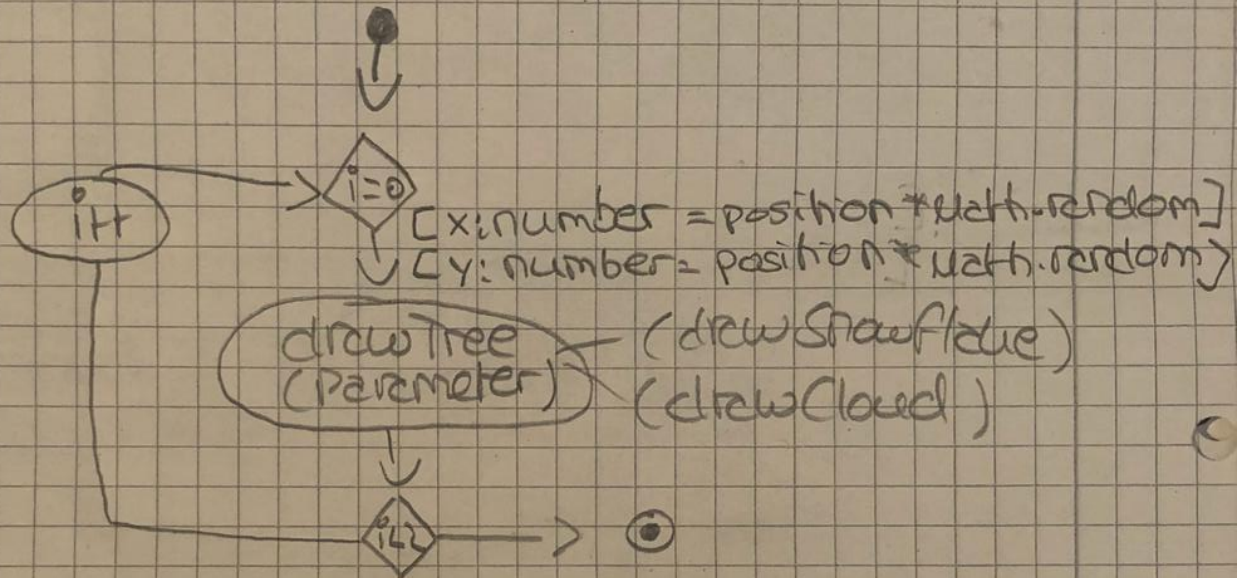 i=0
i++
[x:number = position * Math.random]
[y: number = position * Math.random]
drawTree
(Parameter)
(drawSnowflake)
(drawCloud)
i<2